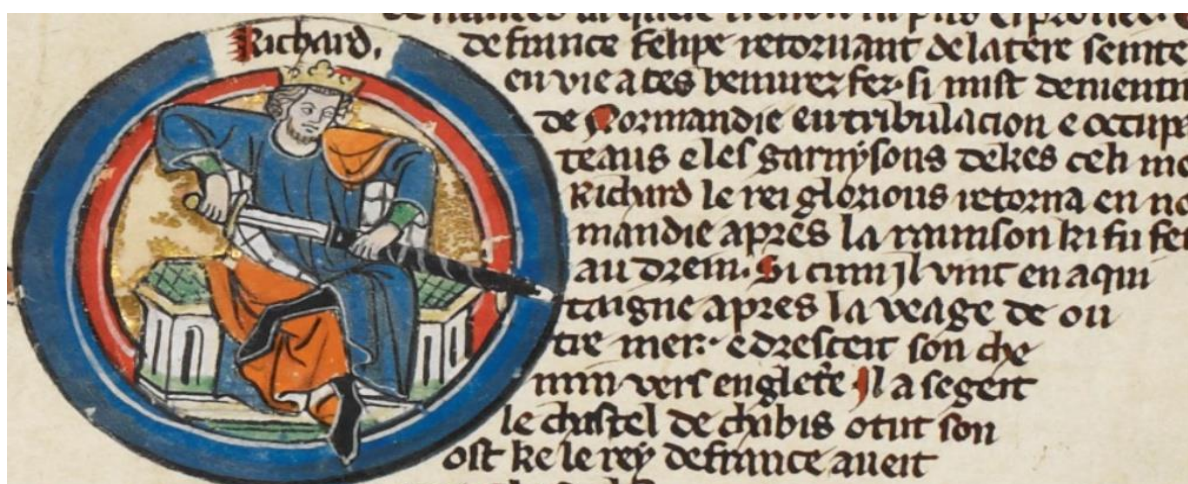 Richard.
de france felipe retornant de la tere seinte
en vie a tes
de Normandie en tribulacion e occupa
teaus e les garnysons
Richard le rei glorious retorna en no
mandie apres la raunson ki fu fet
au drein. Si cum il vint en aqui
taigne apres la veage de ou
tre mer. e dresceit son che
min vers englete Il a segeit
le chastel de chabis o tut son
ost ke le rey de france aveit